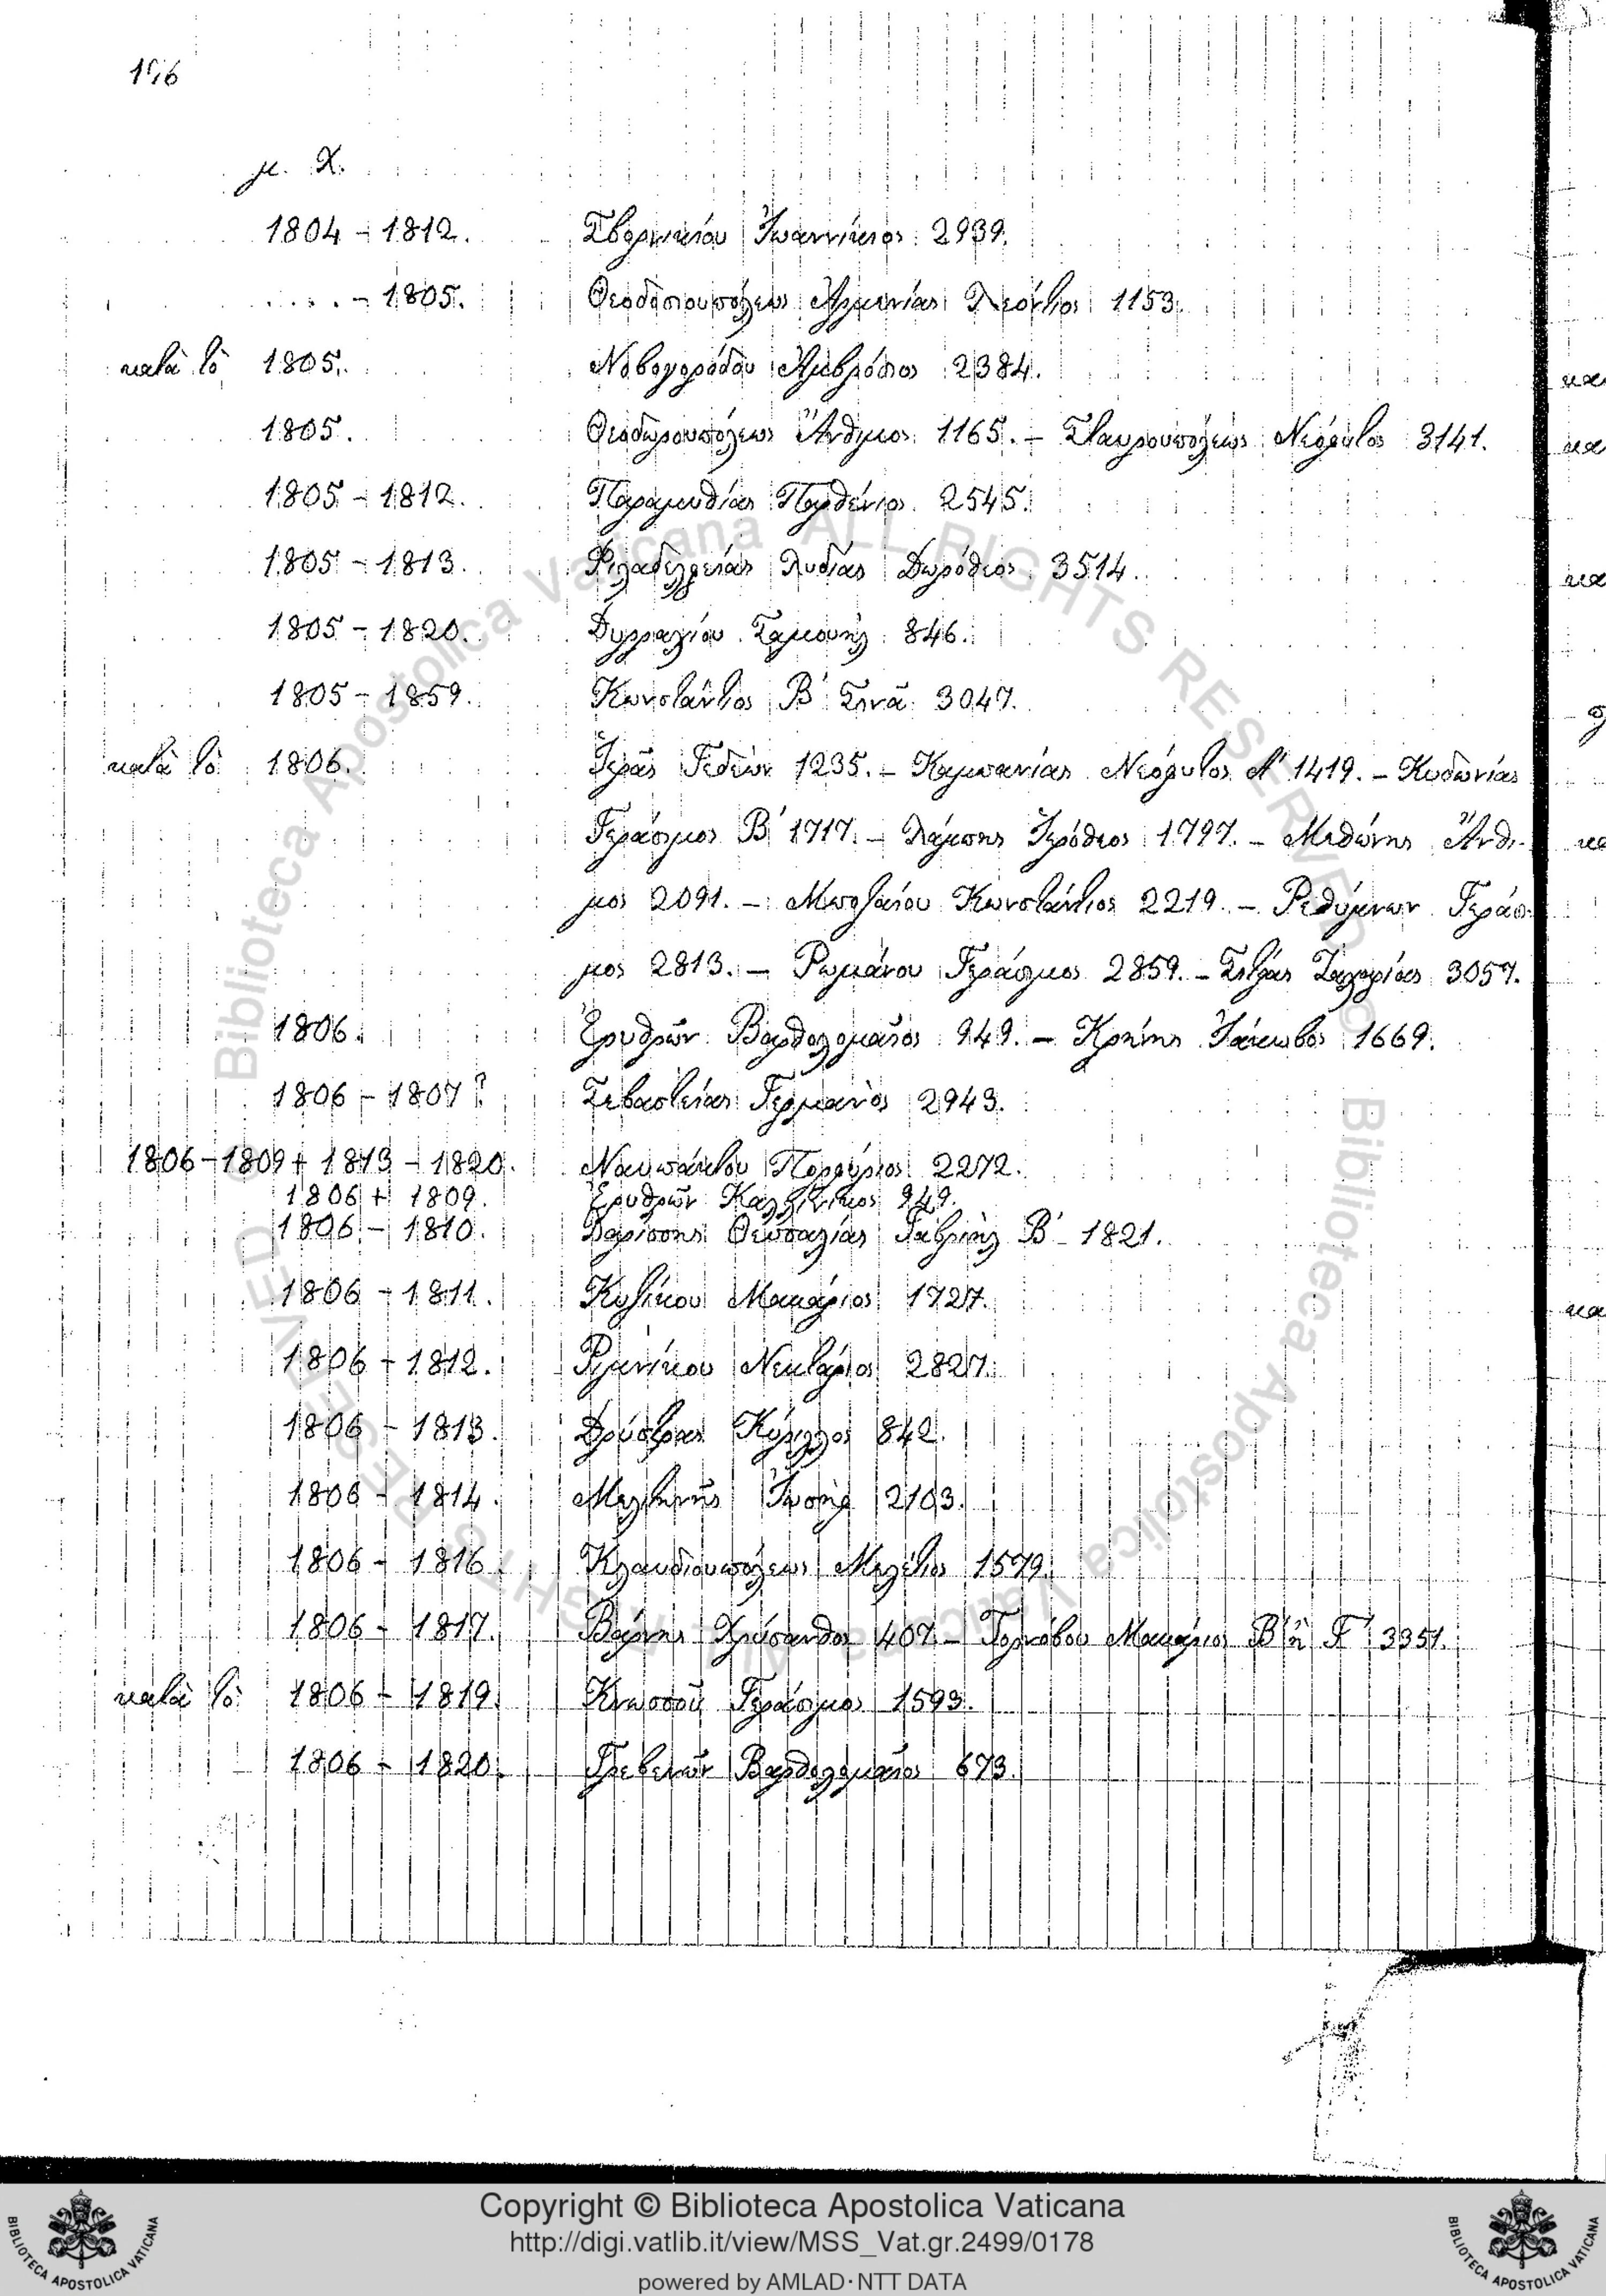 176
μ. Χ.
1804 - 1812. Σβορνικίου Ἰωαννίκιος 2939.
.... - 1805. Θεοδοσιουπόλεως Ἀρμενίας Λεόντιος 1153.
κατὰ τὸ 1805. Νοβογορόδου Ἀμβρόσιος 2384.
1805. Θεοδωρουπόλεως Ἄνθιμος 1165. - Σταυρουπόλεως Νεόφυτος 3141.
1805 - 1812. Παραμυθίας Παρθένιος 2545.
1805 - 1813. Φιλαδελφείας Λυδίας Δωρόθεος 3514.
1805 - 1820. Δυρραχίου Σαμουὴλ 846.
1805 - 1859. Κωνστάντιος Β′ Σινᾶ 3047.
κατὰ τὸ 1806. Ἱερᾶς Γεδεὼν 1235. - Καμπανίας Νεόφυτος Α′ 1419. - Κυδωνίας
Γεράσιμος Β′ 1717. - Λάμπης Ἱερόθεος 1797. - Μεθώνης Ἄνθι-
μος 2091. - Μποζαίου Κωνστάντιος 2219. - Ρεθύμνων Γεράσι-
μος 2813. - Ρωμάνου Γεράσιμος 2859. - Σητείας Ζαχαρίας 3057.
1806. Ἐρυθρῶν Βαρθολομαῖος 949. - Κρήνης Ἰάκωβος 1669.
1806 - 1807? Σεβαστείας Γερμανὸς 2943.
1806 - 1809 + 1813 - 1820. Ναυπάκτου Πορφύριος 2272.
1806 + 1809. Ἐρυθρῶν Καλλίνικος 949.
1806 - 1810. Λαρίσσης Θεσσαλίας Γαβριὴλ Β′ - 1821.
1806 - 1811. Κυζίκου Μακάριος 1727.
1806 - 1812. Ριμνίκου Νεκτάριος 2827.
1806 - 1813. Δρύστρας Κύριλλος 842.
1806 - 1814. Μελιτινῆς Ἰωσὴφ 2103.
1806 - 1816. Κλαυδιουπόλεως Μελέτιος 1579.
1806 - 1817. Βάρνης Χρύσανθος 407. - Τορνόβου Μακάριος Β′ ἢ Γ′ 3351.
κατὰ τὸ 1806 - 1819. Κνωσσοῦ Γεράσιμος 1593.
1806 - 1820. Γρεβενῶν Βαρθολομαῖος 673.
Copyright © Biblioteca Apostolica Vaticana
http://digi.vatlib.it/view/MSS_Vat.gr.2499/0178
powered by AMLAD·NTT DATA